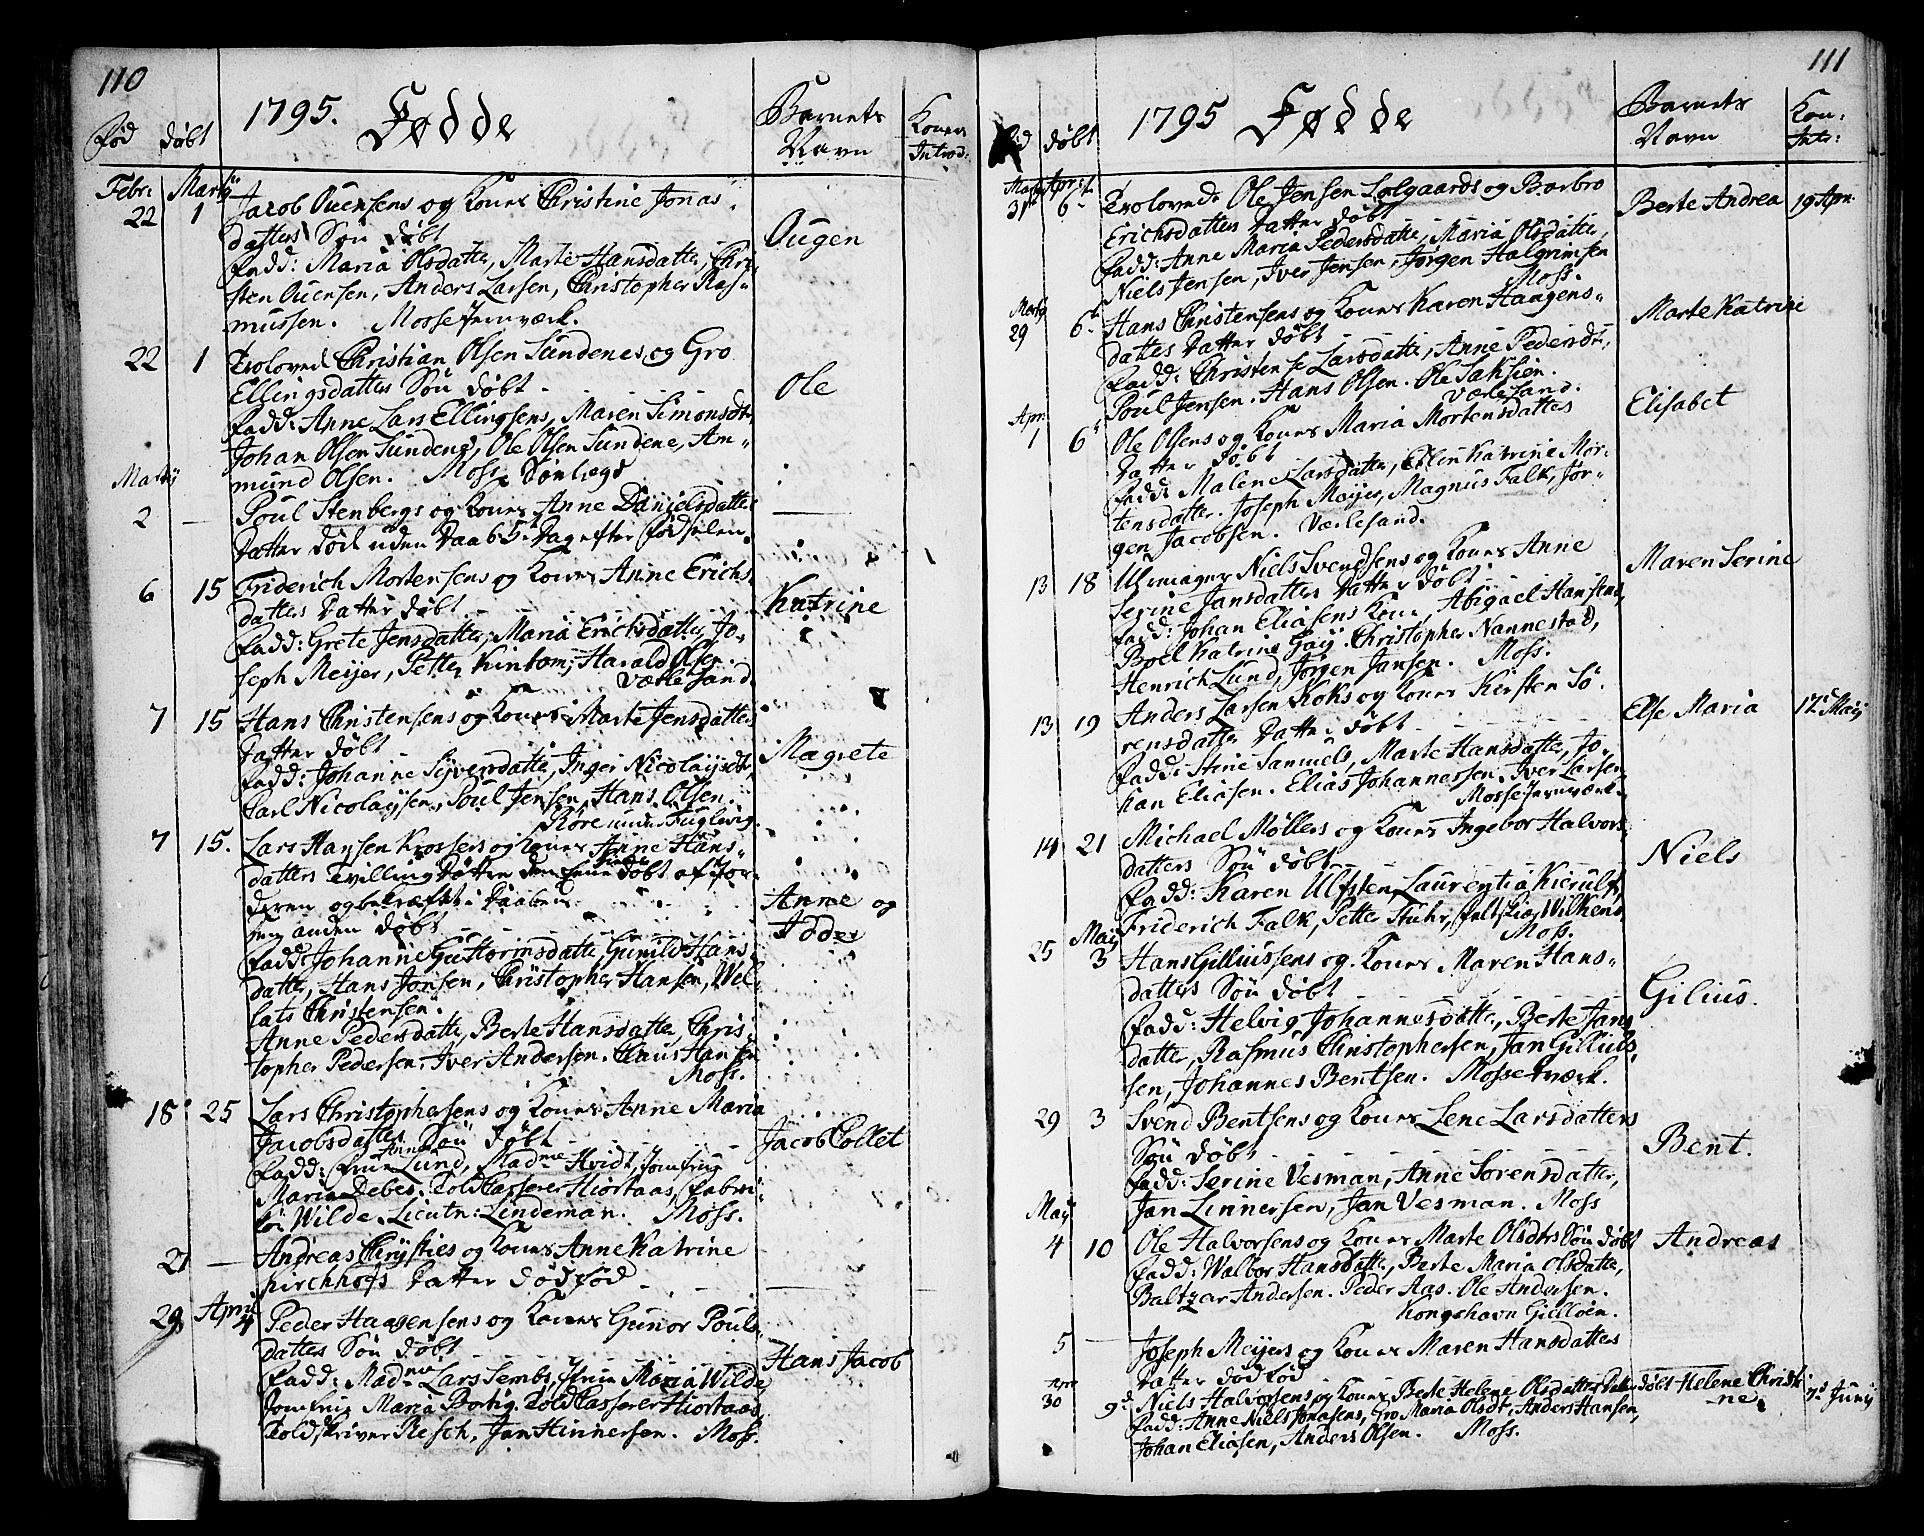 110
1795. Fødde
Barnets
Navn
Koners
Introd:
Fød døbt
Febr: Martÿ
22 1 Jacob Ouensens og Kones Christine Jonas-
datters Søn døbt
Ougen
Fadd: Maria Olsdatter, Marte Hansdatter, Chri-
sten Ouensen, Anders Larsen, Christopher Ras-
mussen. Mosse Jernværk.
22 1 Troloved Christian Olsen Sundenes og Gro
Ellingsdatters Søn døbt
Ole
Fadd: Anne Lars Ellingsens, Maren Simonsdtr
Johan Olsen Sundene, Ole Olsen Sundene, Am-
mund Olsen. Moss
Martÿ
2 — Poul Stenbergs og Kones Anne Danielsdatters
Datter død uden Daab 5te Dag efter Fødselen.
6 15 Friderich Mortensens og Kones Anne Erichs-
datters Datter døbt
Katrine
Fadd: Grete Jensdatter, Maria Erichsdatter, Jo-
seph Meÿer, Petter Kintom, Harald Olsen
Værlesand.
7 15 Hans Christensens og Kones Marte Jensdatters
Datter døbt
Magrete
Fadd: Johanne Sÿversdatter, Inger Nicolaÿsdtr,
Carl Nicolaÿsen, Poul Jensen, Hans Olsen.
Røre under Fuglevig.
7 15. Lars Hansen Krossers og Kones Anne Hans-
datters Tvilling Døttre den Eene døbt af Jor-
deren og bekræftet i Daaben
Anne og
den anden døbt
Fadd: Johanne Guttormsdatter, Gunild Hans-
datter, Hans Jonsen, Christopher Hansen, Wil-
lats Christensen.
Anne Pedersdatter, Berte Hansdatter, Chris-
topher Pedersen, Iver Andersen, Claus Hansen
Moss.
18 25 Lars Christophersens og Kones Anne Maria
Jacobsdatters Søn døbt
Jacob Collet
Fadd: Frue Anne Lund, Madme Hvidt, Jomfrue
Maria Debes, Told Casserer Hiortaas, Fabri-
kør Wilde, Lieutn: Lindeman. Moss.
21 — Andreas Chrÿsties og Kones Anne Katrine
Kirchhofs Datter dødfød
April
29 4 Peder Haagensens og Kones Gunor Pouls-
datters Søn døbt
Hans Jacob
Fadd: Madme Lars Sembs, Frue Maria Wilde
Jomfrue Maria Bortig, Told Casserer Hiortaas
Toldskriver Resch, Jan Hinnersen. Moss.
111
1795 Fødde
Barnets
Navn
Kon:
Intr:
døbt
Martÿ Apr:
31 6te Trolovede Ole Jensen Solgaards og Barbro
Erichsdatters Datter døbt
Berte Andrea 19 Apr:
Fadd: Anne Maria Pedersdatter, Maria Olsdatter,
Niels Jensen, Iver Jensen, Jørgen Halgrimsen
Moss.
Martÿ
29 6te Hans Christensens og Kones Karen Haagens-
datters Datter døbt
Marte Katrine
Fadd: Christense Larsdatter, Anne Pedersdtr,
Poul Jensen. Hans Olsen. Ole Saksien.
Værlesand.
Apr:
1 6te Ole Olsens og Kones Maria Mortensdatters
Datter døbt
Elisabet
Fadd: Malene Larsdatter, Ellen Katrine Mor-
tensdatter. Joseph Meÿer, Magnus Falk, Jør-
gen Jacobsen. Værlesand.
13 18 Uhrmager Niels Svendsens og Kones Anne
Serine Jansdatters Datter døbt
Maren Serine
Fadd: Johan Eliasens Kone, Abigael Hansens,
Boel Katrine Gaÿ. Christopher Nannestad,
Henrich Lund, Jørgen Jansen. Moss.
13 19 Anders Larsen Koks og Kones Kirsten Sø-
rensdatter Datter døbt
Else Maria 12te Maÿ
Fadd: Stine Samuels, Marte Hansdatter, Jo-
han Eliasen. Elias Johannessen. Iver Larsen
Mosse Jernværk.
14 21 Michael Møllers og Kones Ingebor Halvors-
datters Søn døbt
Niels
Fadd: Karen Ulfsten, Laurentia Kierulf,
Friderich Falk, Petter Stuhr, Wilkens
Moss.
Maÿ
25 3 Hans Gilliussens og Kones Maren Hans-
datters Søn døbt
Gilius.
Fadd: Helvig Johannesdatter, Berte Jans-
datter, Rasmus Christophersen, Jan Gillius-
sen, Johannes Bentsen. Mosse værk.
29 3 Svend Bentsens og Kones Lene Larsdatters
Søn døbt
Bent.
Fadd: Serine Vesman, Anne Sørensdatter,
Jan Linnersen, Jan Vesman. Moss
Maÿ
4 10 Ole Halvorsens og Kones Marte Olsdtrs Søn døbt
Andreas
Fadd: Walbor Hansdatter, Berte Maria Olsdatter,
Baltzar Andersen. Peder Aas. Ole Andersen.
Kongshavn Gielløen.
5 — Joseph Meÿers og Kones Maren Hansdatters
Datter dødfød
Apr:
30 9de Niels Halvorsens og Kones Berte Helene Olsdatters Datter døbt Helene Christi-
ne 7de Junÿ
Fadd: Anne Niels Jonasens, Gro Maria Olsdt, Anders Hansen,
Johan Eliasen, Anders Olsen. Moss.